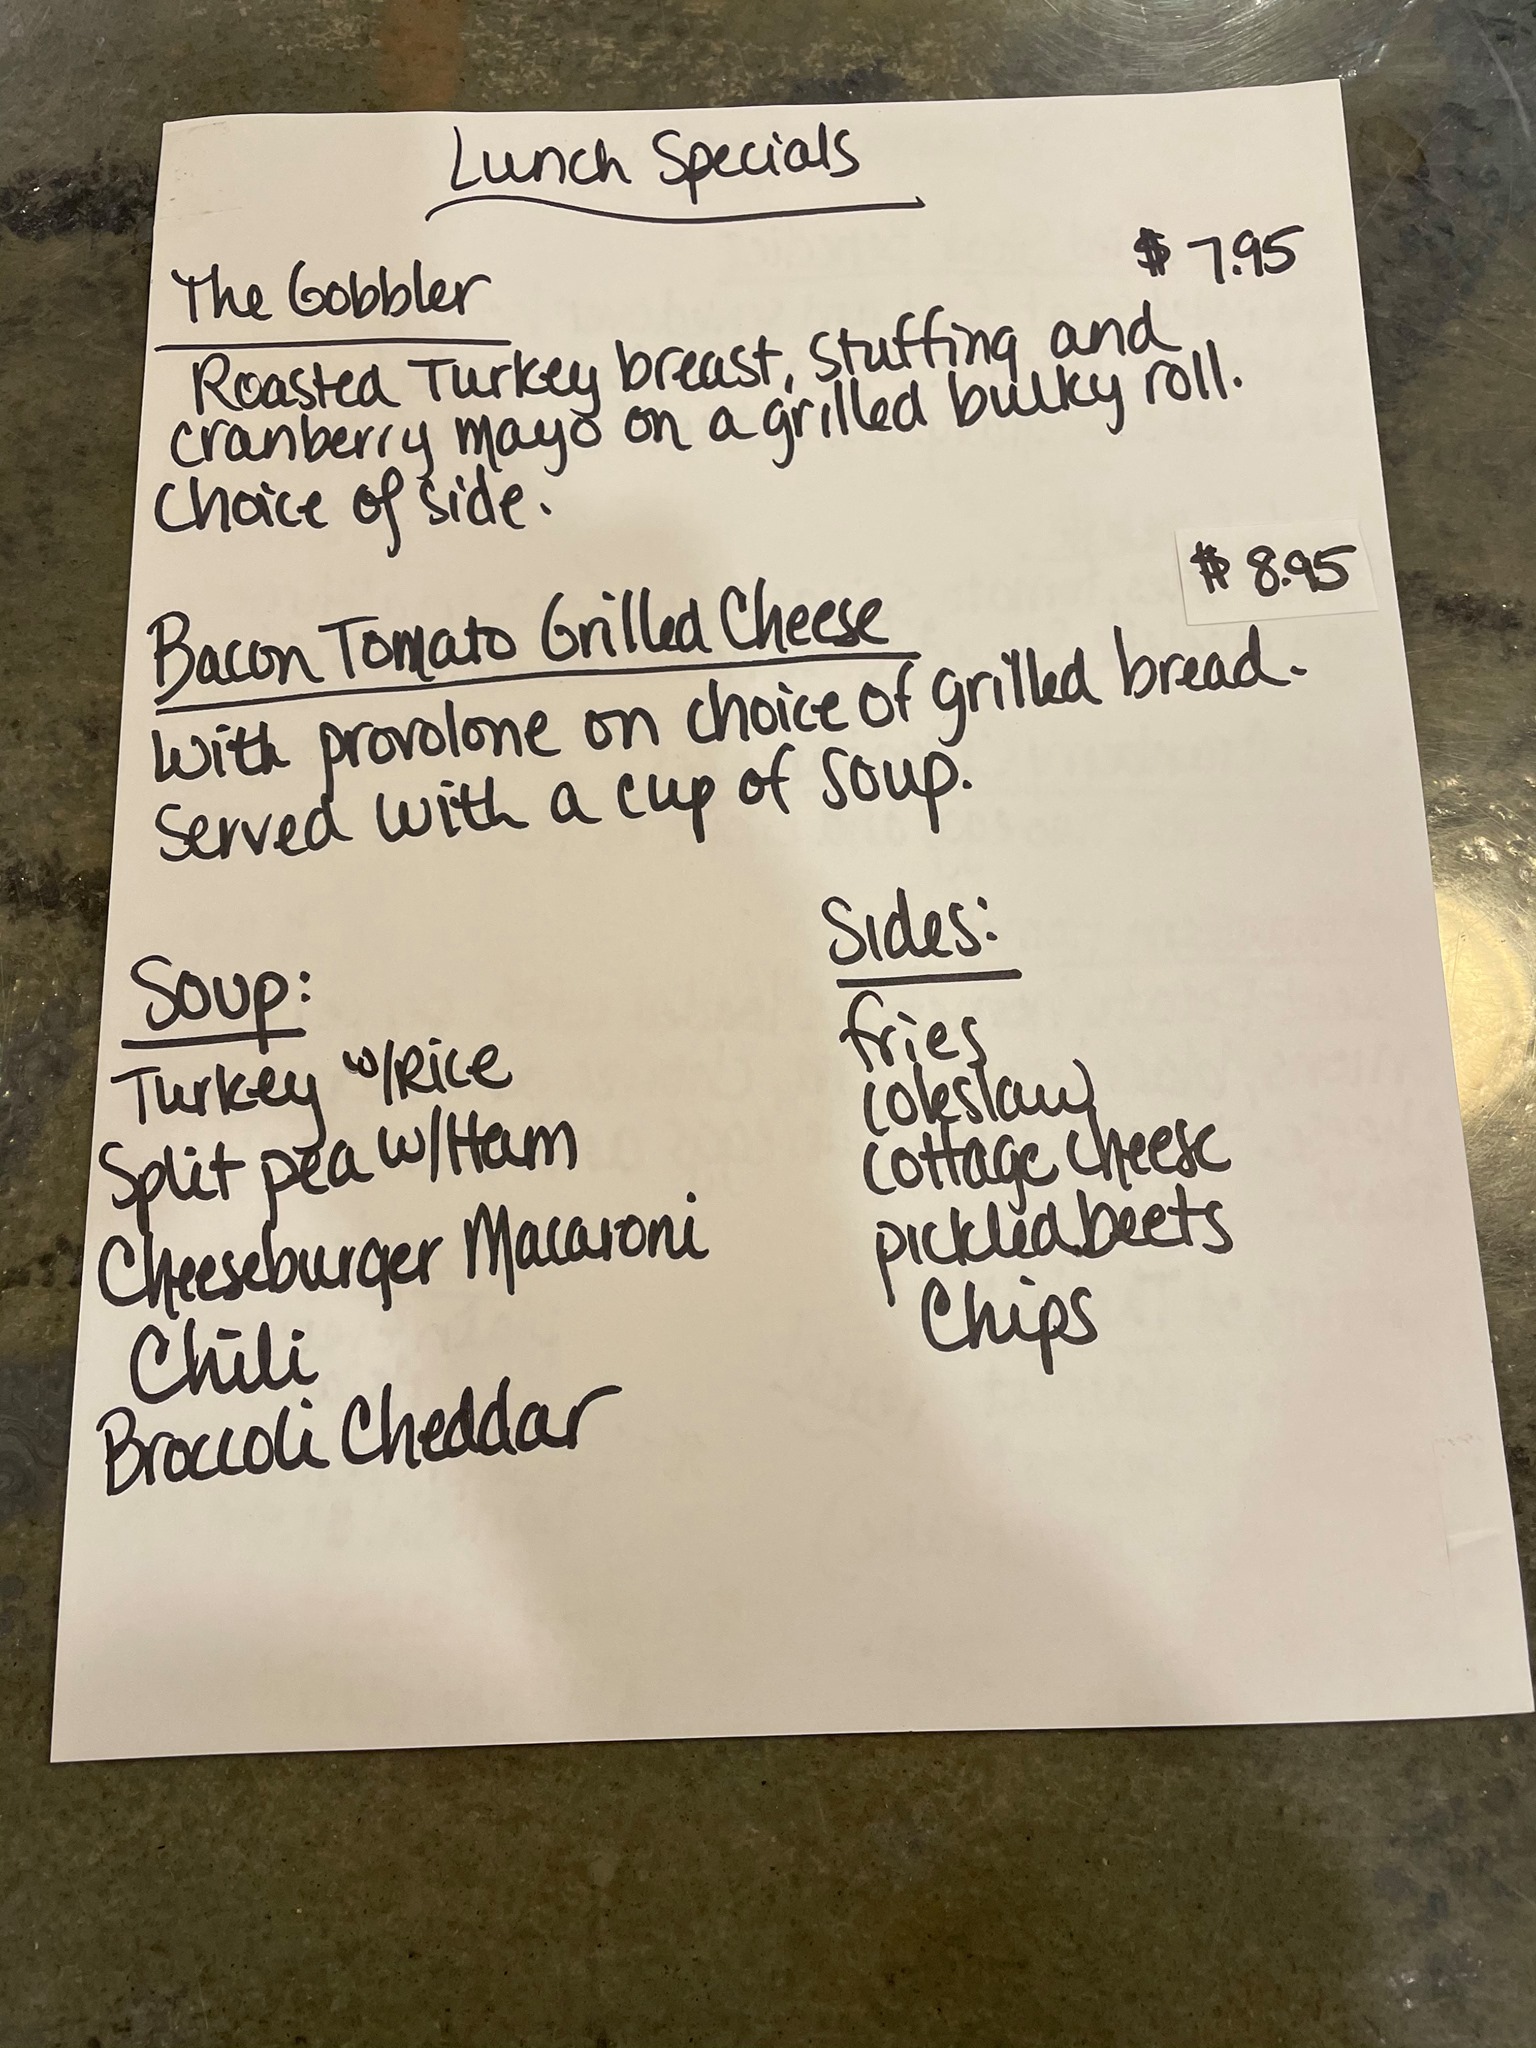 Lunch Specials
The Gobbler $7.95
Roasted Turkey breast, stuffing and
cranberry mayo on a grilled bulky roll.
Choice of side.
$8.95
Bacon Tomato Grilled Cheese
with provolone on choice of grilled bread.
Served with a cup of soup.
Soup:
Turkey w/Rice
Split pea w/Ham
Cheeseburger Macaroni
Chili
Broccoli Cheddar
Sides:
fries
coleslaw
cottage cheese
pickled beets
Chips